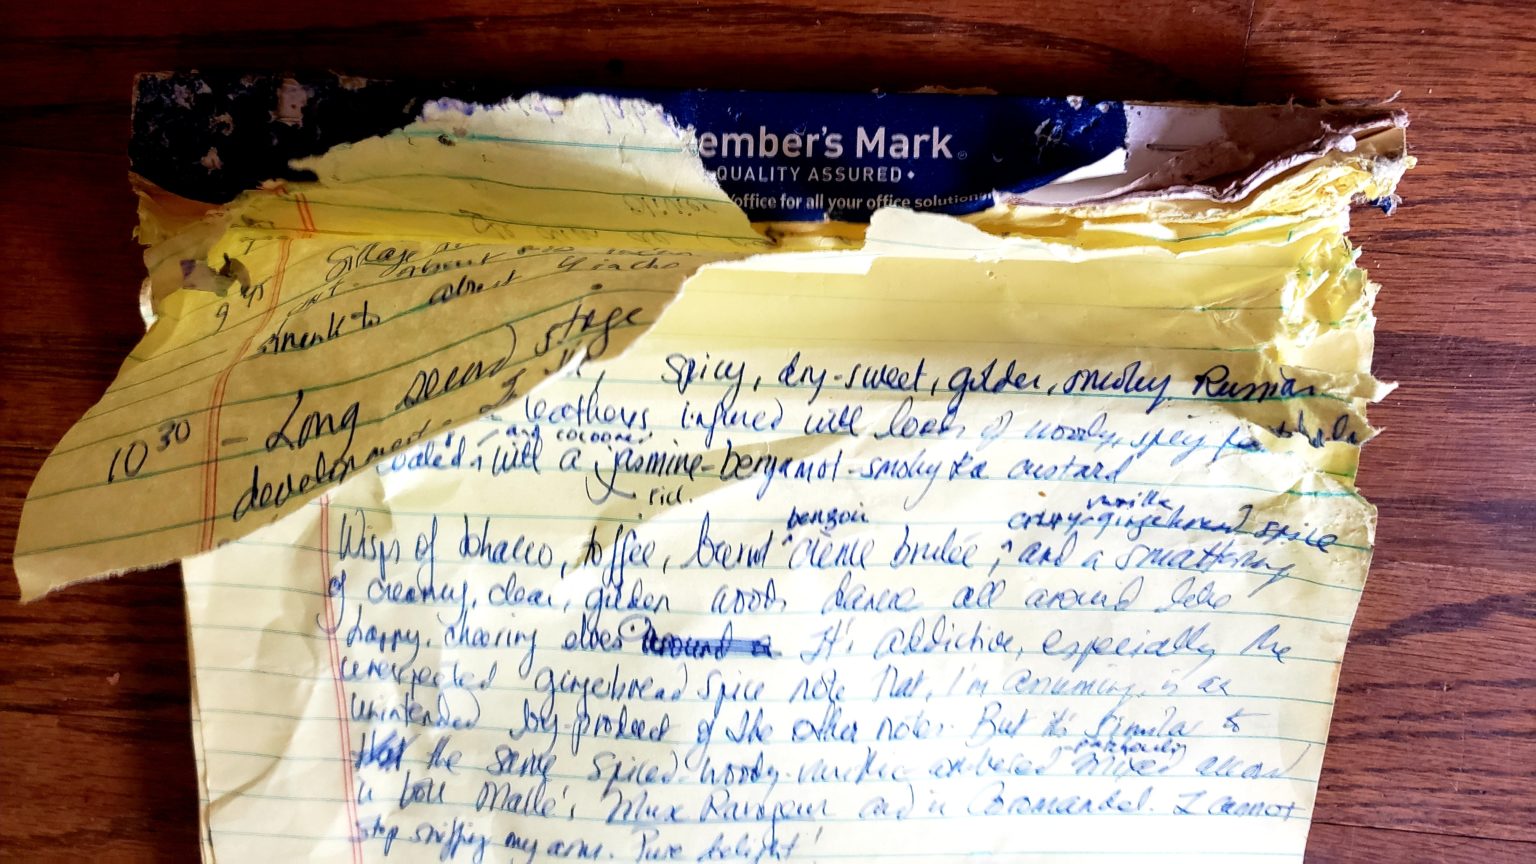 ember's Mark
QUALITY ASSURED
office for all your office solution
Sillage
9 45
about 4 inches
10 30 - Long second stage
development
Spicy, dry-sweet, golden, smoky Russian
leathers infused with loads of woody, spicy
and cocooned
coated with a jasmine-bergamot-smoky tea custard
rich
benzoin vanilla
gingerbread spice
Wisps of tobacco, toffee, burnt crème brulée, and a smattering
of creamy, clear, golden woods dance all around like
happy, cheering elves around It's addictive, especially the
unexpected gingerbread spice note that, I'm assuming, is an
unintended by-product of the other notes. But it's similar to
patchouli
the same spiced-woody- mixed accord
in both Malle's Musc Ravageur and in Coromandel. I cannot
stop sniffing my arm. Pure delight!